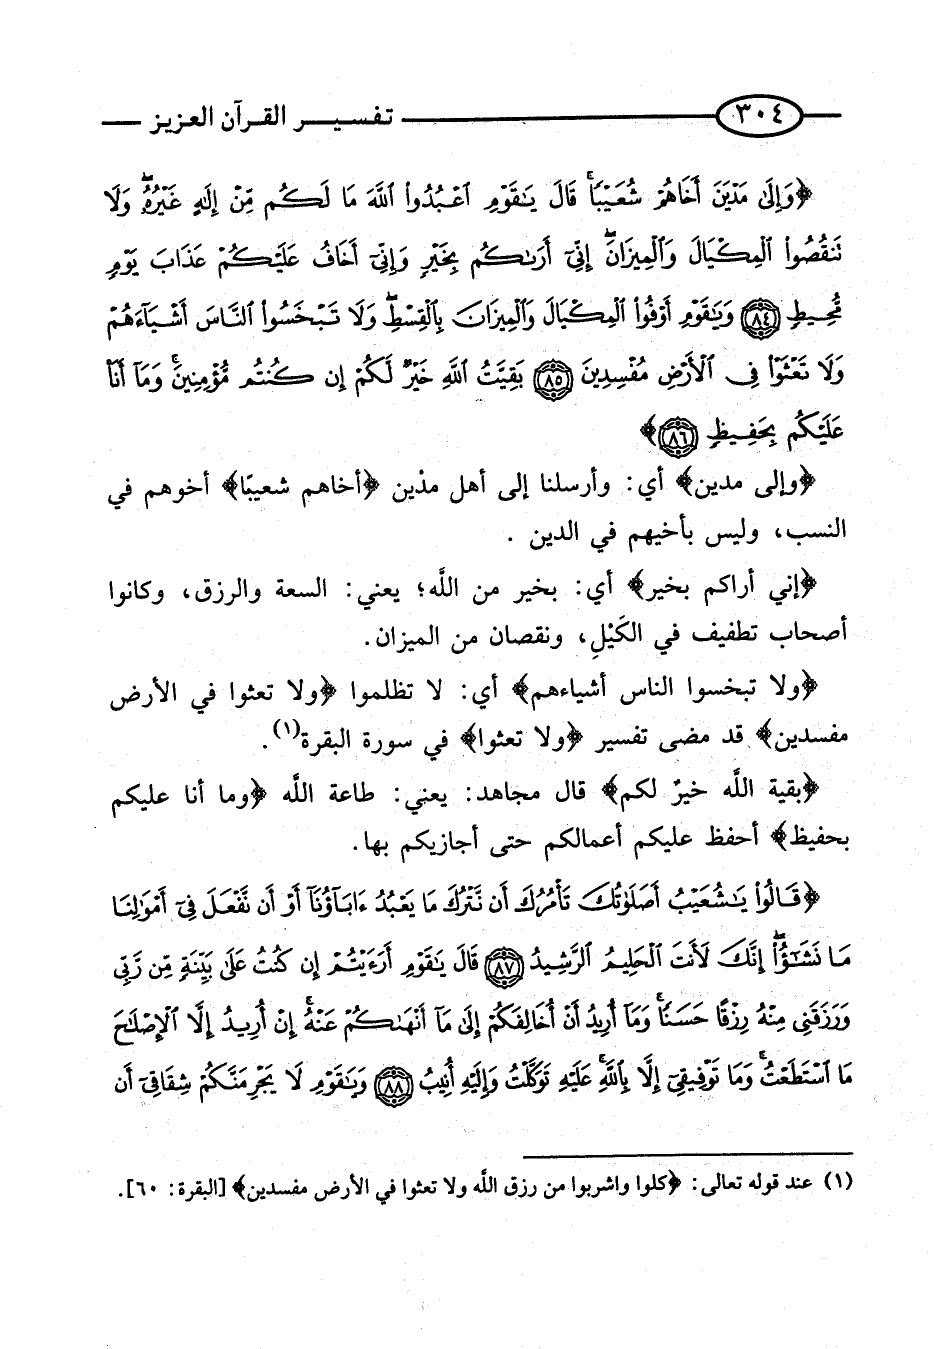 ٣٠٤ تفسير القرآن العزيز
﴿وَإِلَىٰ مَدْيَنَ أَخَاهُمْ شُعَيْبًا ۚ قَالَ يَٰقَوْمِ ٱعْبُدُوا۟ ٱللَّهَ مَا لَكُم مِّنْ إِلَٰهٍ غَيْرُهُۥ ۖ وَلَا
تَنقُصُوا۟ ٱلْمِكْيَالَ وَٱلْمِيزَانَ ۖ إِنِّىٓ أَرَىٰكُم بِخَيْرٍ وَإِنِّىٓ أَخَافُ عَلَيْكُمْ عَذَابَ يَوْمٍ
مُّحِيطٍ ٨٤ وَيَٰقَوْمِ أَوْفُوا۟ ٱلْمِكْيَالَ وَٱلْمِيزَانَ بِٱلْقِسْطِ ۖ وَلَا تَبْخَسُوا۟ ٱلنَّاسَ أَشْيَآءَهُمْ
وَلَا تَعْثَوْا۟ فِى ٱلْأَرْضِ مُفْسِدِينَ ٨٥ بَقِيَّتُ ٱللَّهِ خَيْرٌ لَّكُمْ إِن كُنتُم مُّؤْمِنِينَ ۚ وَمَآ أَنَا۠
عَلَيْكُم بِحَفِيظٍ ٨٦﴾
﴿وإلى مدين﴾ أي: وأرسلنا إلى أهل مدْين ﴿أخاهم شعيبًا﴾ أخوهم في
النسب، وليس بأخيهم في الدين .
﴿إني أراكم بخير﴾ أي: بخير من اللَّه؛ يعني: السعة والرزق، وكانوا
أصحاب تطفيف في الكَيْلِ، ونقصان من الميزان.
﴿ولا تبخسوا الناس أشياءهم﴾ أي: لا تظلموا ﴿ولا تعثوا في الأرض
مفسدين﴾ قد مضى تفسير ﴿ولا تعثوا﴾ في سورة البقرة(١).
﴿بقية اللَّه خيرٌ لكم﴾ قال مجاهد: يعني: طاعة اللَّه ﴿وما أنا عليكم
بحفيظ﴾ أحفظ عليكم أعمالكم حتى أجازيكم بها.
﴿قَالُوا۟ يَٰشُعَيْبُ أَصَلَوٰتُكَ تَأْمُرُكَ أَن نَّتْرُكَ مَا يَعْبُدُ ءَابَآؤُنَآ أَوْ أَن نَّفْعَلَ فِىٓ أَمْوَٰلِنَا
مَا نَشَٰٓؤُا۟ ۖ إِنَّكَ لَأَنتَ ٱلْحَلِيمُ ٱلرَّشِيدُ ٨٧ قَالَ يَٰقَوْمِ أَرَءَيْتُمْ إِن كُنتُ عَلَىٰ بَيِّنَةٍ مِّن رَّبِّى
وَرَزَقَنِى مِنْهُ رِزْقًا حَسَنًا ۚ وَمَآ أُرِيدُ أَنْ أُخَالِفَكُمْ إِلَىٰ مَآ أَنْهَىٰكُمْ عَنْهُ ۚ إِنْ أُرِيدُ إِلَّا ٱلْإِصْلَٰحَ
مَا ٱسْتَطَعْتُ ۚ وَمَا تَوْفِيقِىٓ إِلَّا بِٱللَّهِ ۚ عَلَيْهِ تَوَكَّلْتُ وَإِلَيْهِ أُنِيبُ ٨٨ وَيَٰقَوْمِ لَا يَجْرِمَنَّكُمْ شِقَاقِىٓ أَن
(١) عند قوله تعالى: ﴿كلوا واشربوا من رزق اللَّه ولا تعثوا في الأرض مفسدين﴾ [البقرة: ٦٠].